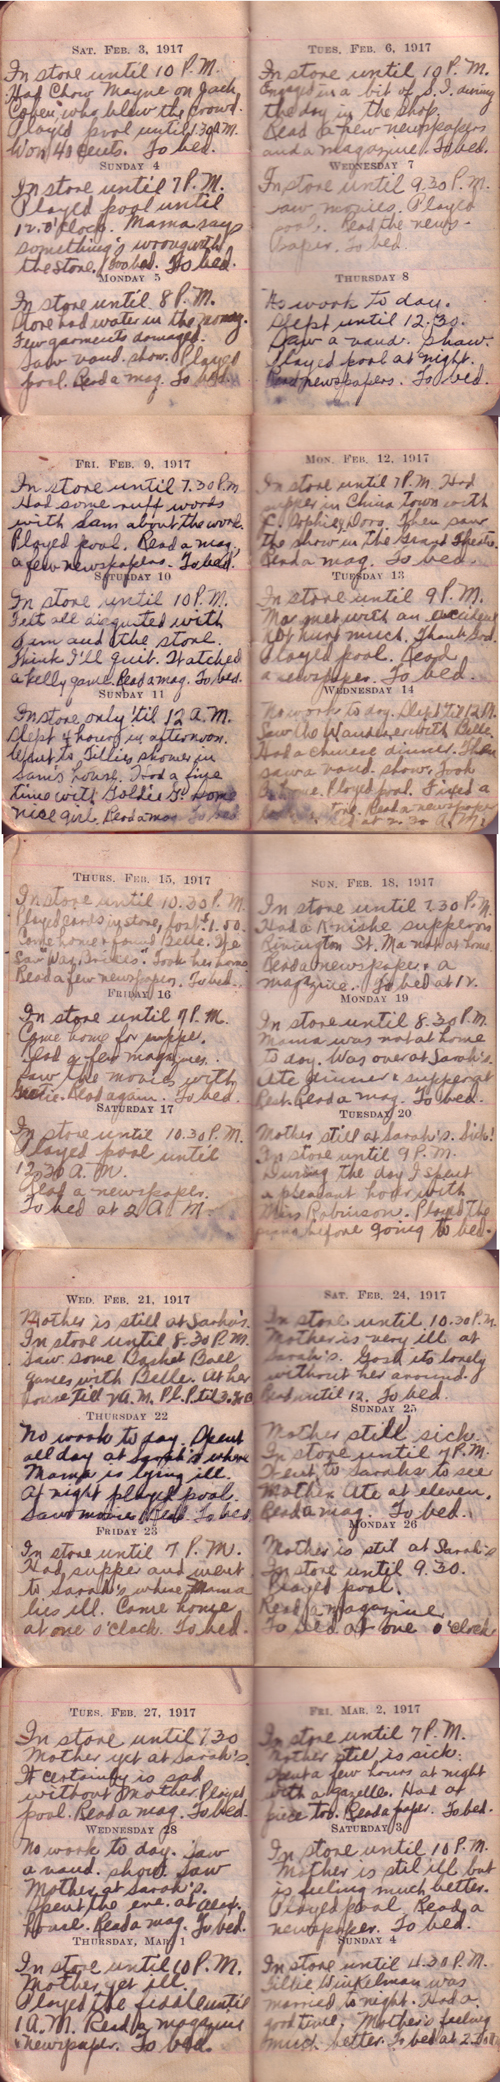 SAT. FEB. 3, 1917
In store until 10 P.M.
Had Chow Mayne on Jack
Cohen, who blew the crowd.
Played pool until 1.30 A.M.
Won 40 cents. To bed.
SUNDAY 4
In store until 7 P.M.
Played pool until
12. O'clock. Mama says
something's wrong with
the store. To bed.
MONDAY 5
In store until 8 P.M.
Store had water in the
Few garments damaged.
Saw vaud. show. Played
pool. Read a mag. To bed.
TUES. FEB. 6, 1917
In store until 10 P.M.
Engaged in a bit of S.I. during
the day in the shop.
Read a few newspapers
and a magazine. To bed.
WEDNESDAY 7
In store until 9.30 P.M.
saw movies. Played
pool. Read the news-
paper. To bed.
THURSDAY 8
No work to day.
Slept until 12.30.
Saw a vaud. Show.
Played pool at night.
Read newspapers. To bed.
FRI. FEB. 9, 1917
In store until 7.30 P.M.
Had some ruff words
with Sam about the work.
Played pool. Read a mag,
a few newspapers. To bed.
SATURDAY 10
In store until 10 P.M.
Felt all disgusted with
Sam and the store.
Think I'll quit. Watched
a kelly game. Read a mag. To bed.
SUNDAY 11
In store only 'til 12 A.M.
Slept 4 hours in afternoon.
Went to Tillie's shower in
Sam's house. Had a fine
time with Goldie G. Some
nice girl. Read a mag. To bed
MON. FEB. 12, 1917
In store until 7 P.M. Had
supper in China town with
Then saw
the show in the Grand Theatre.
Read a mag. To bed.
TUESDAY 13
In store until 9 P.M.
Ma met with an accident
not hurt much. Thank God.
Played pool. Read
a newspaper. To bed.
WEDNESDAY 14
No work to day. Slept 'till 12 A.
Saw The Wanderer with Belle.
Had a chinese dinner. Then
saw a vaud. show. Took
B. home. Played pool. Fixed a
Read a newspaper
bed at 2.30 A.M.
THURS. FEB. 15, 1917
In store until 10.30 P.M.
Played cards in store, lost 1.50.
Come home & found Belle. We
saw War Brides. Took her home
Read a few newspapers. To bed.
FRIDAY 16
In store until 7 P.M.
Come home for supper.
Read a few magazines.
Saw the movies with
Gertie. Read again. To bed.
SATURDAY 17
In store until 10.30 P.M.
Played pool until
12.30 A.M.
Read a newspaper.
To bed at 2 A.M.
SUN. FEB. 18, 1917
In store until 7.30 P.M.
Had a K'nishe supper on
Rivington St. Ma not at home
Read a newspaper & a
magazine. To bed at 12.
MONDAY 19
In store until 8.30 P.M.
Mama was not at home
to day. Was over at Sarah's.
Ate dinner & supper at
Rest. Read a mag. To bed.
TUESDAY 20
Mother still at Sarah's. Sick!
In store until 9 P.M.
During the day I spent
a pleasant hour with
Miss Robinson. Played the
piano before going to bed.
WED. FEB. 21, 1917
Mother is still at Sarah's.
In store until 8.30 P.M.
Saw some Basket Ball
games with Belle. At her
house till 2 A.M.
THURSDAY 22
No work to day. Spent
all day at Sarah's where
Mama is lying ill.
At night played pool.
Saw movies. Read. To bed
FRIDAY 23
In store until 7 P.M.
Had supper and went
to Sarah's where Mama
lies ill. Come home
at one o'clock. To bed.
SAT. FEB. 24, 1917
In store until 10.30 P.M.
Mother is very ill at
Sarah's. Gosh its lonely
without her around.
Read until 12. To bed.
SUNDAY 25
Mother still sick.
In store until 7 P.M.
Went to Sarahs to see
Mother. Ate at eleven.
Read a mag. To bed.
MONDAY 26
Mother is stil at Sarah's
In store until 9.30.
Played pool.
Read a magazine
To bed at one o'clock
TUES. FEB. 27, 1917
In store until 7.30
Mother yet at Sarah's.
It certainly is sad
without Mother. Played
pool. Read a mag. To bed.
WEDNESDAY 28
No work to day. Saw
a vaud. show. Saw
Mother at Sarah's.
Spent the eve. at
house. Read a mag. To bed.
THURSDAY, MAR. 1
In store until 10 P.M.
Mother yet ill.
Played the fiddle until
1 A.M. Read a magazine
& newspaper. To bed.
FRI. MAR. 2, 1917
In store until 7 P.M.
Mother stil is sick.
Spent a few hours at night
with a gazelle. Had a
piece too. Read a paper. To bed.
SATURDAY 3
In store until 10 P.M.
Mother is stil ill but
is feeling much better.
Played pool. Read a
newspaper. To bed.
SUNDAY 4
In store until 4.30 P.M.
Tillie Winkelman was
married to night. Had a
good time. Mother's feeling
much better. To bed at 2.30